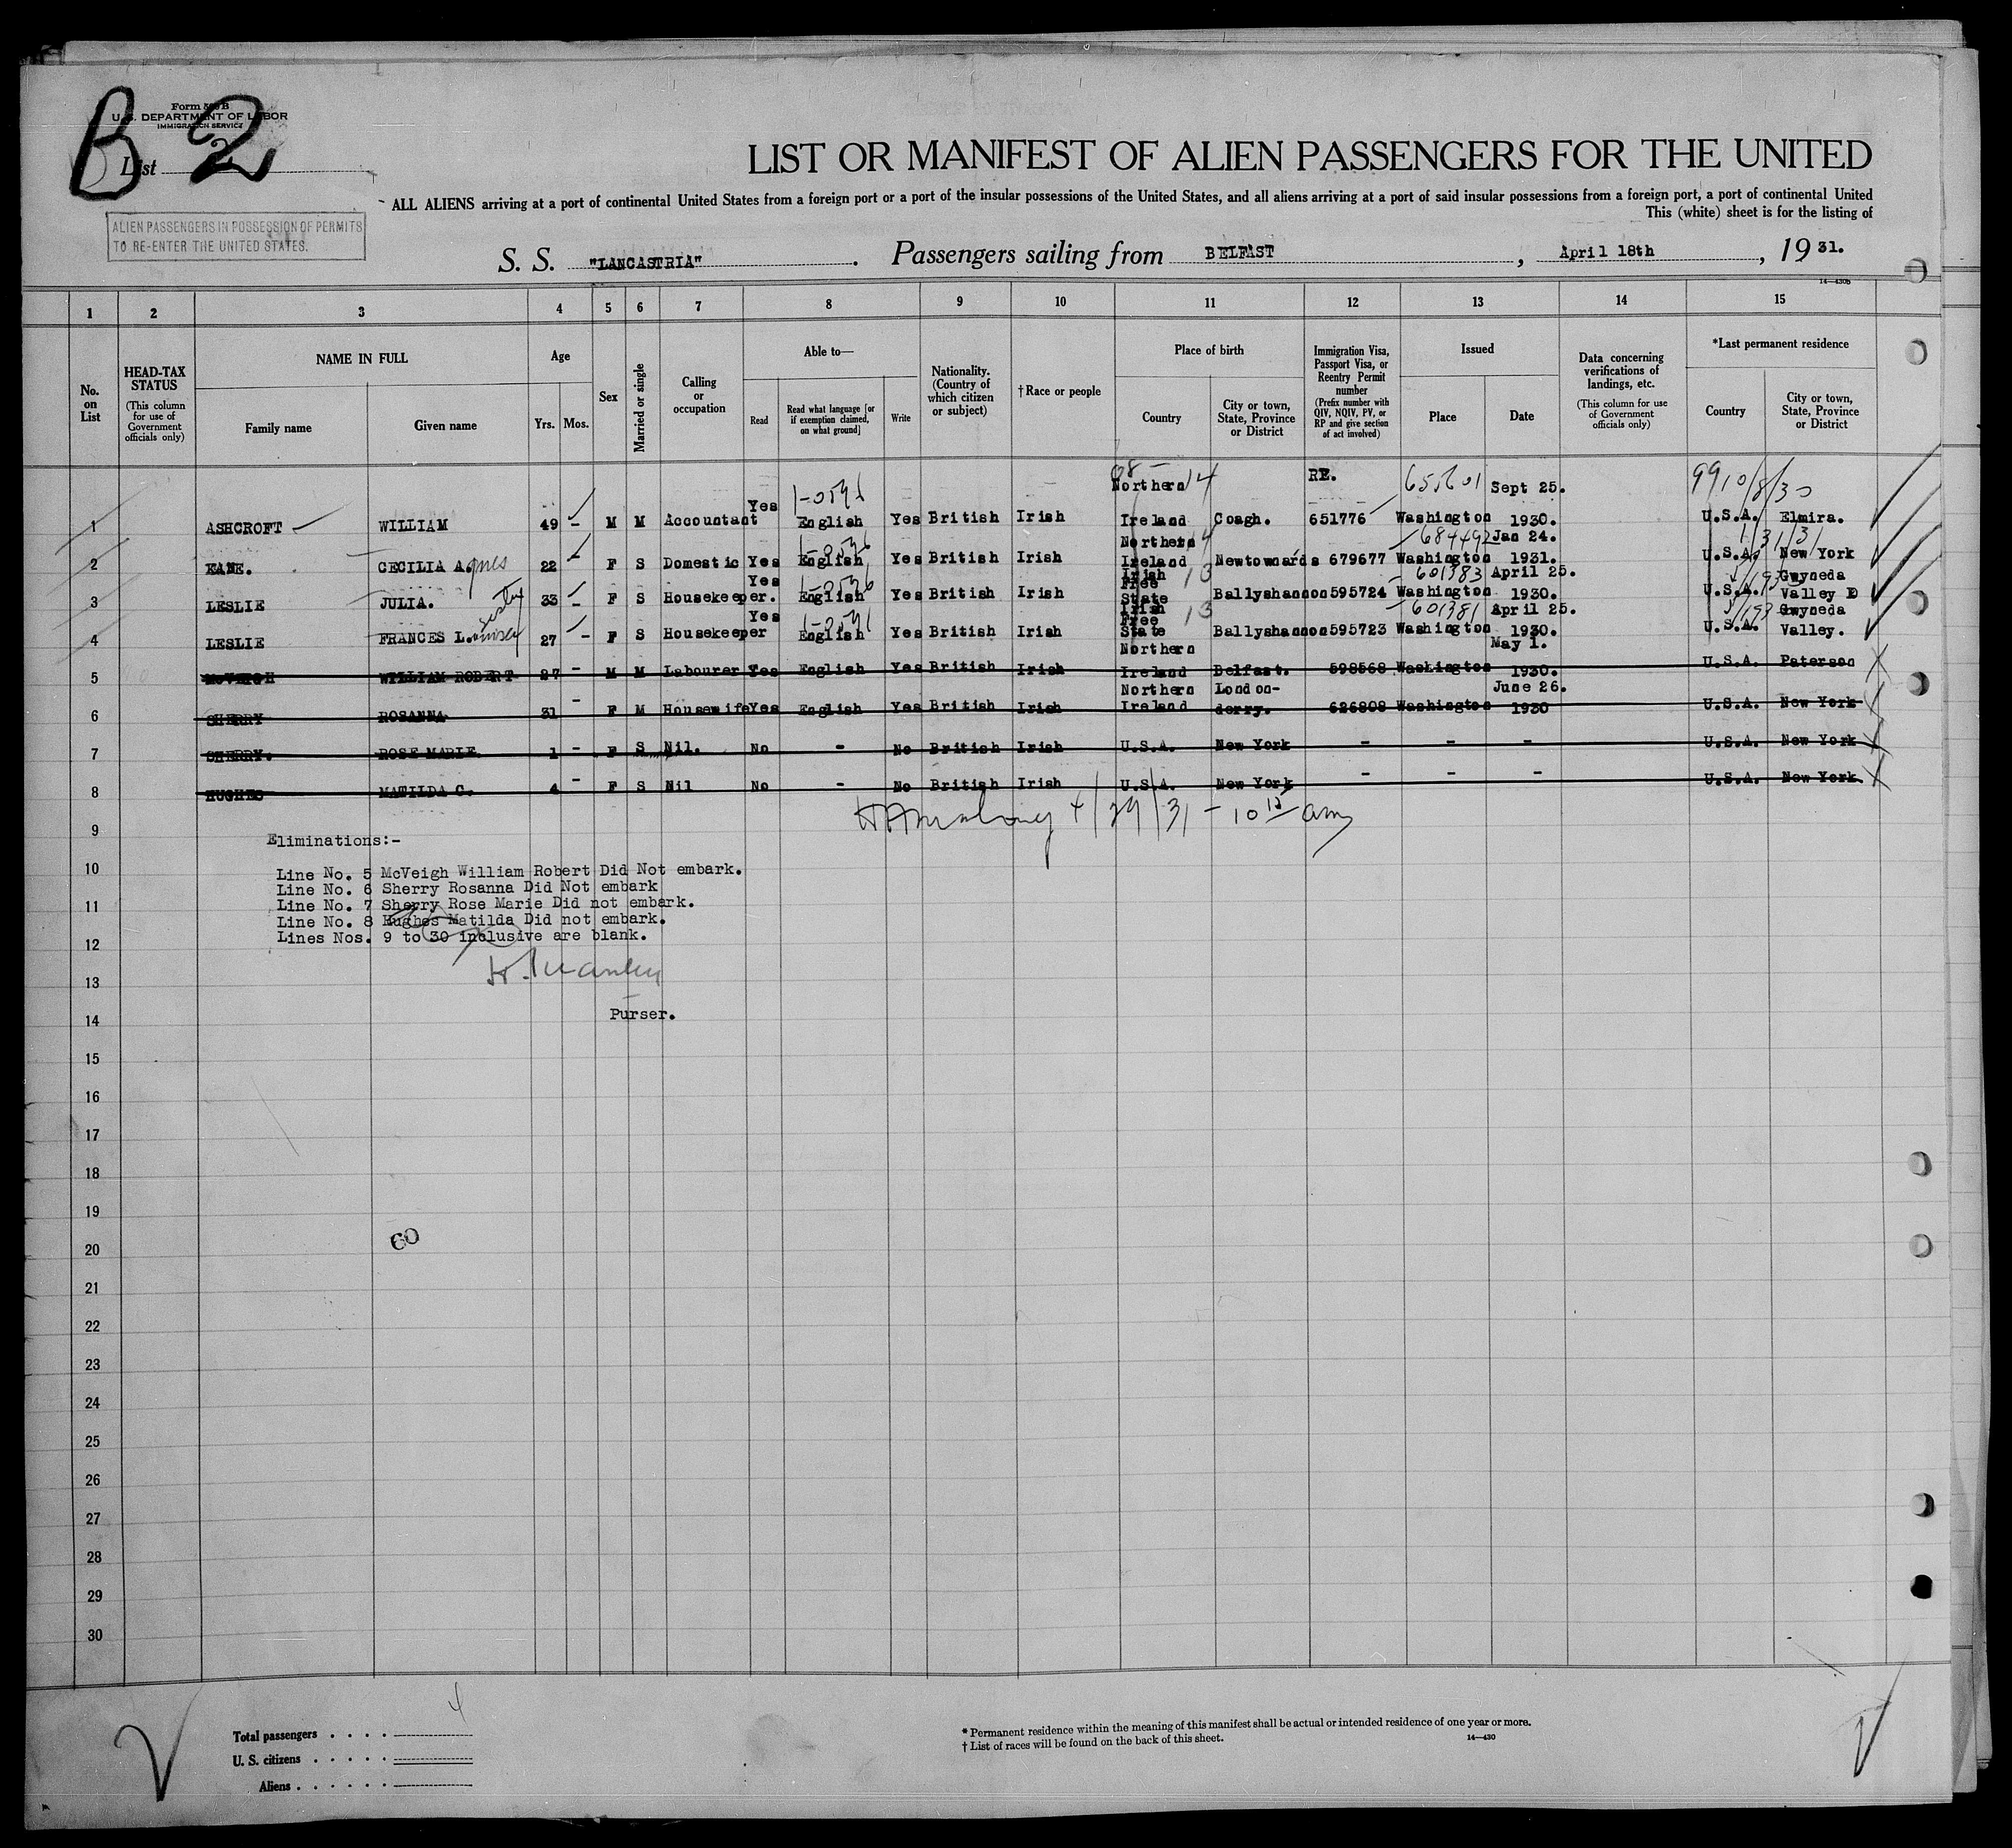 Form 500B
U. S. DEPARTMENT OF LABOR
IMMIGRATION SERVICE
B 2
List 2
ALIEN PASSENGERS IN POSSESSION OF PERMITS
TO RE-ENTER THE UNITED STATES.
LIST OR MANIFEST OF ALIEN PASSENGERS FOR THE UNITED
ALL ALIENS arriving at a port of continental United States from a foreign port or a port of the insular possessions of the United States, and all aliens arriving at a port of said insular possessions from a foreign port, a port of continental United
This (white) sheet is for the listing of
S. S. "LANCASTRIA". Passengers sailing from BELFAST, April 18th, 1931.
14—430B
1 2 3 4 5 6 7 8 9 10 11 12 13 14 15
No. on List
HEAD-TAX STATUS (This column for use of Government officials only)
NAME IN FULL
Family name Given name
Age
Yrs. Mos.
Sex
Married or single
Calling or occupation
Able to—
Read Read what language [or if exemption claimed, on what ground] Write
Nationality. (Country of which citizen or subject)
† Race or people
Place of birth
Country City or town, State, Province or District
Immigration Visa, Passport Visa, or Reentry Permit number (Prefix number with QIV, NQIV, PV, or RP and give section of act involved)
Issued
Place Date
Data concerning verifications of landings, etc. (This column for use of Government officials only)
*Last permanent residence
Country City or town, State, Province or District
1 ASHCROFT WILLIAM 49 - M M Accountant Yes English Yes British Irish Northern Ireland Coagh. RE. 651776 Washington Sept 25. 1930. U.S.A. Elmira.
2 KANE. CECILIA Agnes 22 - F S Domestic Yes English Yes British Irish Northern Ireland Newtownards 679677 684492 Washington Jan 24. 1931. U.S.A. New York
3 LESLIE JULIA. 33 - F S Housekeeper. Yes English Yes British Irish Irish Free State Ballyshannon 595724 601383 Washington April 25. 1930. U.S.A. Gwyneda Valley P
4 LESLIE FRANCES L. 27 - F S Housekeeper Yes English Yes British Irish Irish Free State Ballyshannon 595723 601381 Washington April 25. 1930. U.S.A. Gwyneda Valley.
5 McVEIGH WILLIAM ROBERT 27 - M M Labourer Yes English Yes British Irish Northern Ireland Belfast. 598568 Washington May 1. 1930. U.S.A. Paterson
6 SHERRY ROSANNA 31 - F M Housewife Yes English Yes British Irish Northern Ireland London-derry. 626808 Washington June 26. 1930 U.S.A. New York
7 SHERRY. ROSE MARIE 1 - F S Nil. No - No British Irish U.S.A. New York - - - U.S.A. New York
8 HUGHES MATILDA C. 4 - F S Nil No - No British Irish U.S.A. New York - - - U.S.A. New York.
4/29/31 - 10 15 am
9
Eliminations:-
10
Line No. 5 McVeigh William Robert Did Not embark.
Line No. 6 Sherry Rosanna Did Not embark
11
Line No. 7 Sherry Rose Marie Did not embark.
Line No. 8 Hughes Matilda Did not embark.
12
Lines Nos. 9 to 30 inclusive are blank.
13
Purser.
14
15
16
17
18
19
60
20
21
22
23
24
25
26
27
28
29
30
Total passengers . . . . 4
U. S. citizens . . . . .
Aliens . . . . . .
* Permanent residence within the meaning of this manifest shall be actual or intended residence of one year or more.
† List of races will be found on the back of this sheet.
14—430